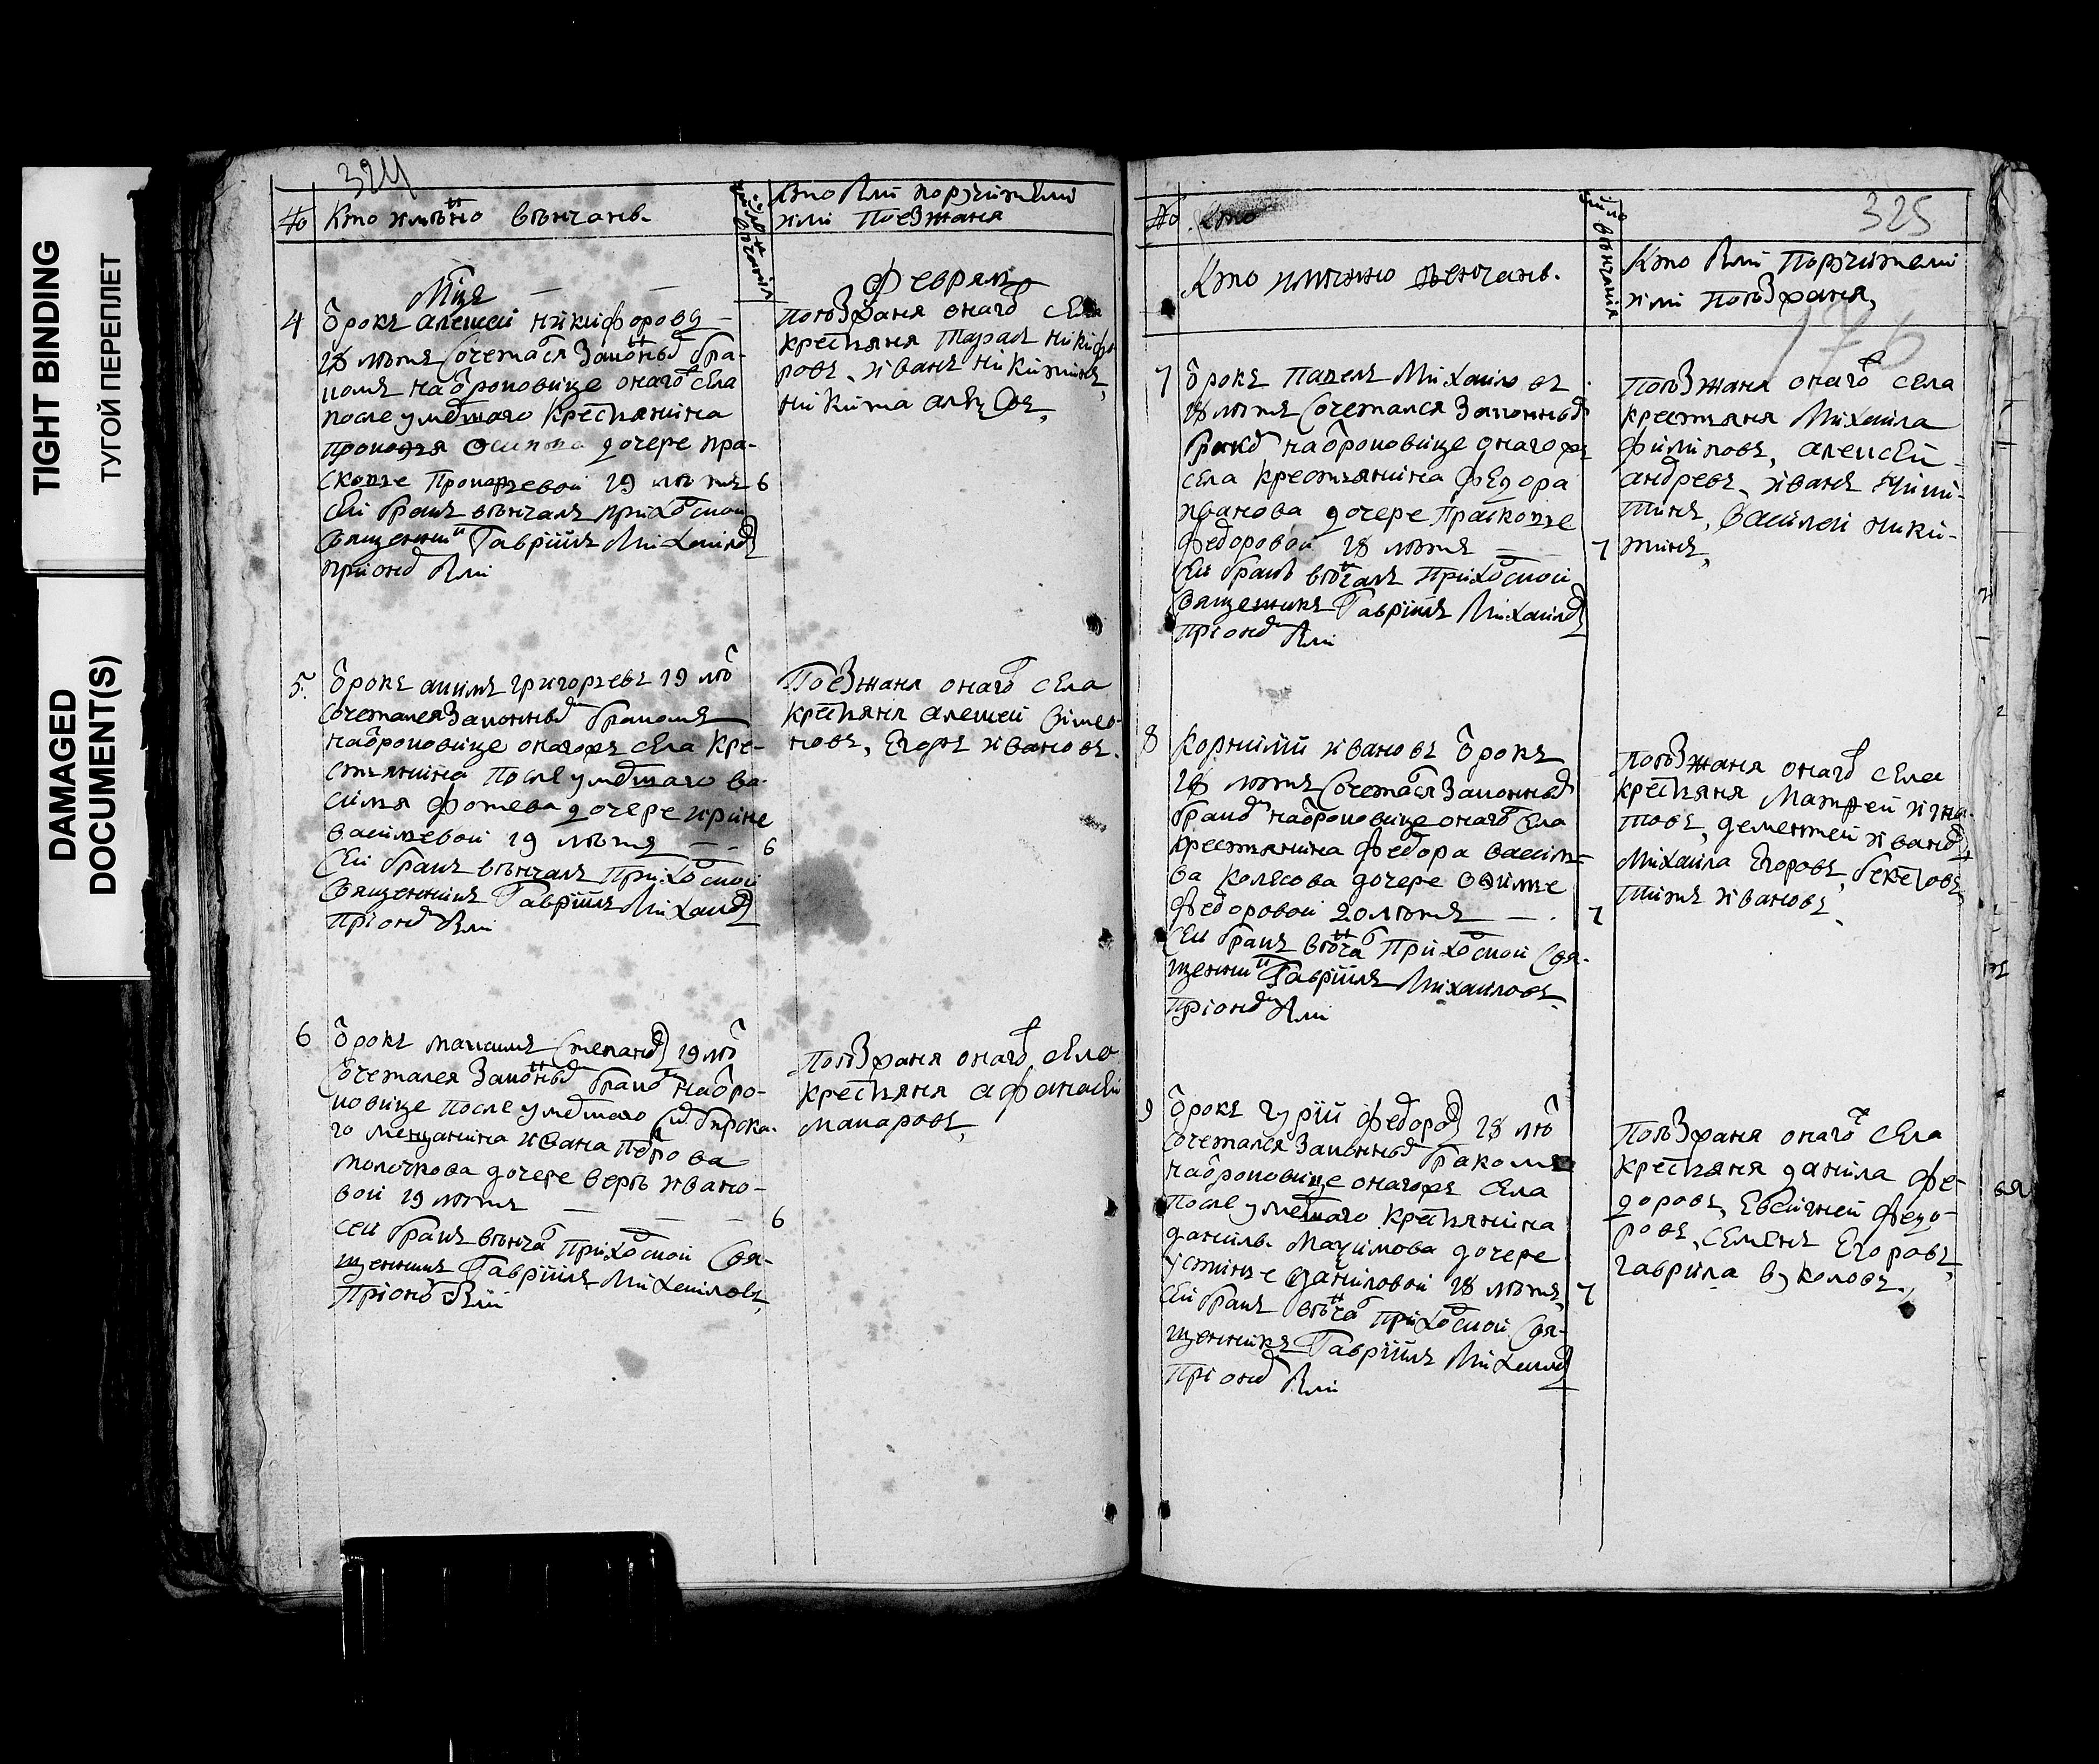 TIGHT BINDING
ТУГОЙ ПЕРЕПЛЕТ
DAMAGED
DOCUMENT(S)
324
№ Кто имѣно вѣнчанъ.
кто были поручители
или Поезжаня
Мцъ
Февраль
4 Ѻрокъ алеѯей никифоровъ
18 лѣтъ сочетася законнымъ бра-
комъ наѻроковице онаго села
после умершаго крестьянина
прокофья осипова дочере пра-
сковье Прокофьевой 19 лѣтъ 6
сей бракъ вѣнчалъ приходской
священникъ Гавріилъ Михаиловъ
при ономъ были
поѣзжаня онаго села
крестьяня Тарас никифо-
ровъ, иванъ никитинъ,
никита
5. Ѻрокъ акимъ григорьевъ 19 лѣ
сочетался законнымъ бракомъ
наѻроковице онагожъ села кре-
стьянина после умершаго ва-
силья фотева дочере ирине
васильевой 19 лѣтъ — 6
сей бракъ вѣнчалъ Приходской
священникъ Гавріилъ Михаиловъ
При ономъ были
Поезжаня онаго села
крестьяня алеѯей
новъ, Егоръ ивановъ.
6 Ѻрокъ маѯимъ степановъ 19 лѣ
сочетался законнымъ бракомъ наѻро-
ковице после умершаго
го мещанина ивана петрова
молочкова дочере верѣ ивано-
вой 19 лѣтъ — 6
сей бракъ вѣнча Приходской свя-
щенникъ Гавріилъ Михаиловъ
При ономъ были
Поѣзжаня онаго села
крестьяня афанасей
макаровъ,
№ Кто
325
Кто имянно венчанъ.
число вѣнчанія
Кто были Поручители
или поѣзжаня,
176
7 Ѻрокъ Павелъ Михаиловъ
18 лѣтъ сочетался законнымъ
бракомъ наѻроковице онагожъ
села крестьянина Федора
иванова дочере Прасковье
федоровой 18 лѣтъ — 7
сей бракъ вѣнчалъ Приходской
священикъ Гавріилъ Михаиловъ
при ономъ были
Поѣзжаня онаго села
крестьяня Михаила
филиповъ, алеѯей
андревъ, иванъ никит-
тинъ, василей ники-
тинъ,
8 Корнилий ивановъ Ѻрокъ
18 лѣтъ сочетася законнымъ
бракомъ наѻроковице онаго села
крестьянина федора василь-
ва колясова дочере
федоровой 20 лѣтъ — 7
сей бракъ вѣнча Приходской свя-
щенникъ Гавріилъ Михаиловъ
При ономъ были
Поѣзжаня онаго села
крестьяня Матфей игна-
товъ, дементей ивановъ
Михаила Егоровъ,
ивановъ
9 Ѻрокъ гурій федоровъ 18 лѣ
сочетался законнымъ бракомъ
наѻроковице онагожъ села
после умершаго крестьянина
данилы Маѯимова дочере
устинье даниловой 18 лѣтъ, 7
сей бракъ вѣнча приходской свя-
щенникъ Гавріилъ Михаиловъ
При ономъ были
Поѣзжаня онаго села
крестьяня данила фе-
доровъ, Евсигней федо-
ровъ, семенъ Егоровъ,
гаврила вуколовъ,